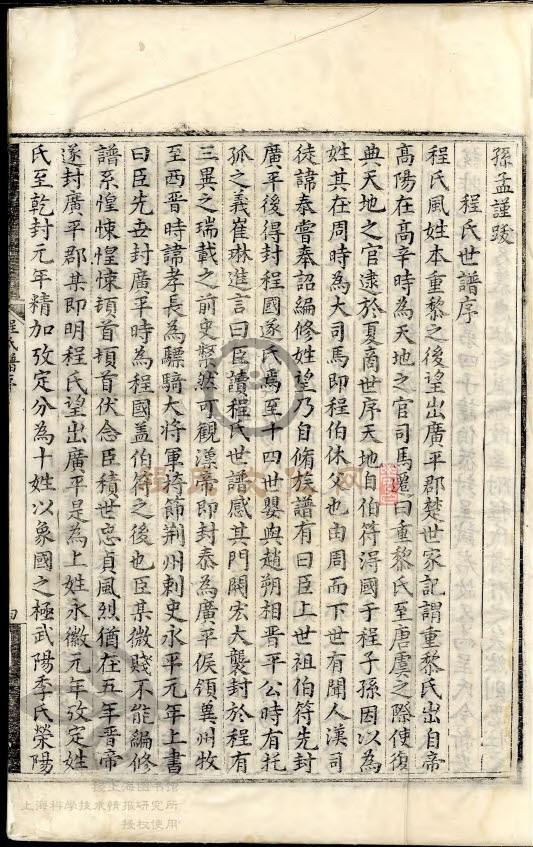 孫孟謹跋
程氏世譜序
程氏風姓本重黎之後望出廣平郡楚世家記謂重黎氏出自帝
高陽在高辛時為天地之官司馬遷曰重黎氏至唐虞之際使復
典天地之官逮於夏商世序天地自伯符淂國于程子孫因以為
姓其在周時為大司馬即程伯休父也由周而下世有聞人漢司
徒諱㤗嘗奉詔編修姓望乃自脩族譜有曰臣上世祖伯符先封
廣平後得封程國遂氏焉至十四世嬰與趙朔相晋平公時有托
孤之義崔琳進言曰臣讀程氏世譜感其門閥宏大襲封於程有
三異之瑞載之前史粲然可觀漂帝即封泰為廣平侯領兾州牧
至西晋時諱孝長為驃騎大將軍持節荆州刺史永平元年上書
曰臣先丗封廣平時為程國盖伯符之後也臣某微賤不能編修
譜系惶悚惶悚頓首頓首伏念臣積世忠貞風烈循在五年晋帝
遂封廣平郡其即明程氏望出廣平是為上姓永徽元年攷定姓
氏至乾封元年精加攷定分為十姓以象國之極武陽李氏榮陽
程氏譜序
四
程氏文化网
授上海图书馆
上海科学技术情报研究所
授权使用